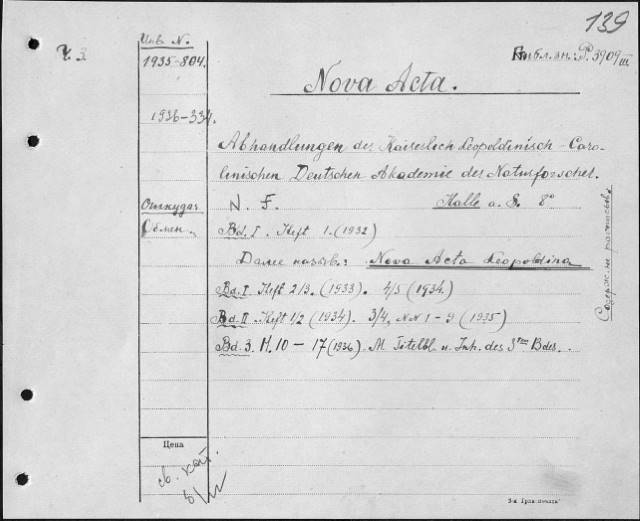 139
Ч. 3
Инв. N.
Библ. зн. P. 3909 III
1935-804.
Nova Acta.
1936-334.
Abhandlungen der Kaiserlich Leopoldinisch-Caro-
linischen Deutschen Akademie der Naturforscher.
Откуда:
N. F. Halle a. S. 8°
Обмен.
Bd. I. Heft 1. (1932)
Далее назыв.: Nova Acta Leopoldina
Bd. I Heft 2/3. (1933). 4/5 (1934)
Bd. II Heft 1/2 (1934). 3/4, NN 1-9 (1935)
Bd. 3. H. 10 - 17 (1936). M. Titelbl. u. Inh. des 3ten Bdes.
Содерж. м.
Цена
св. кат.